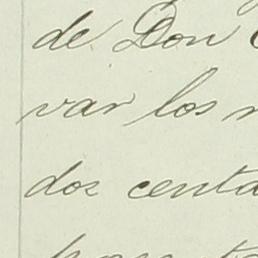 de Don
var los
dos centa